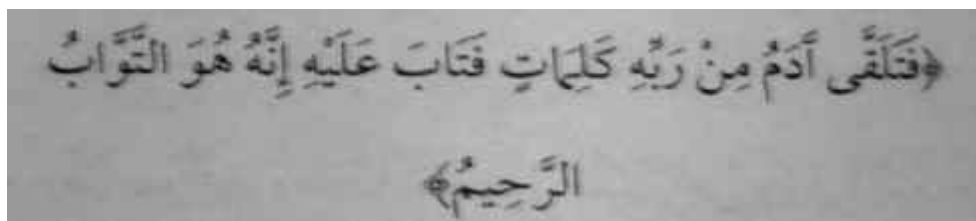 ﴿فَتَلَقَّى آدَمُ مِنْ رَبِّهِ كَلِمَاتٍ فَتَابَ عَلَيْهِ إِنَّهُ هُوَ التَّوَّابُ
الرَّحِيمُ﴾